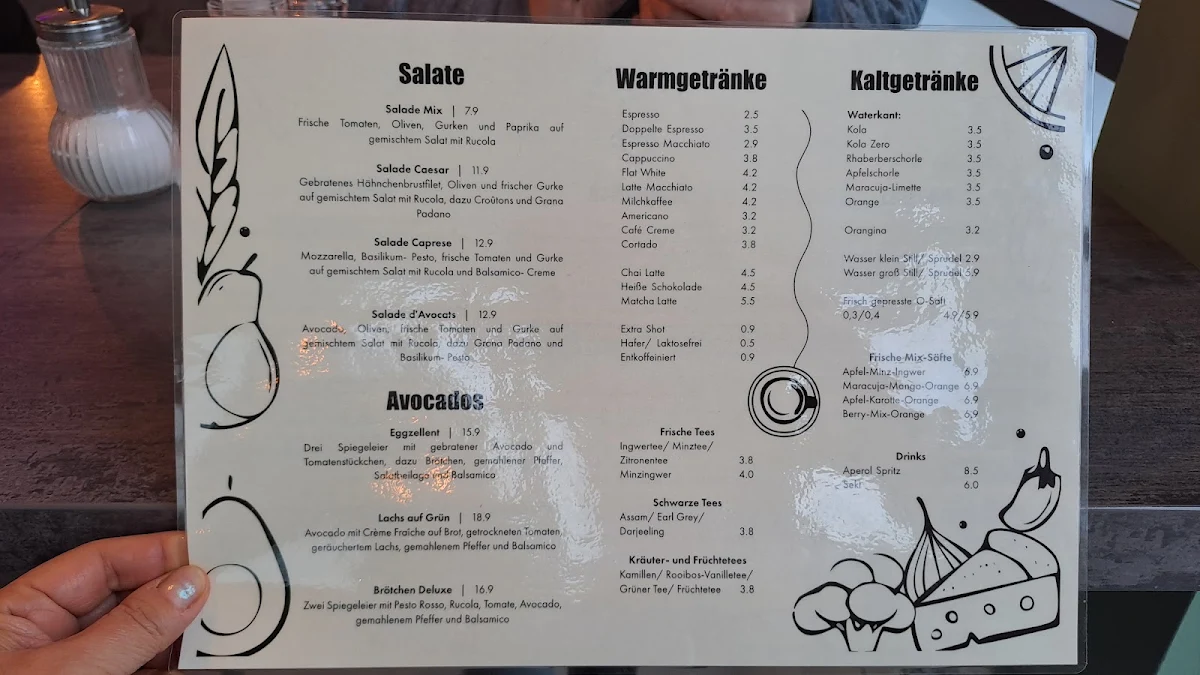 Salate
Salade Mix | 7.9
Frische Tomaten, Oliven, Gurken und Paprika auf
gemischtem Salat mit Rucola
Salade Caesar | 11.9
Gebratenes Hähnchenbrustfilet, Oliven und frischer Gurke
auf gemischtem Salat mit Rucola, dazu Croûtons und Grana
Padano
Salade Caprese | 12.9
Mozzarella, Basilikum- Pesto, frische Tomaten und Gurke
auf gemischtem Salat mit Rucola und Balsamico- Creme
Salade d'Avocats | 12.9
Avocado, Oliven, frische Tomaten und Gurke auf
gemischtem Salat mit Rucola, dazu Grana Padano und
Basilikum- Pesto
Avocados
Eggzellent | 15.9
Drei Spiegeleier mit gebratener Avocado und
Tomatenstückchen, dazu Brötchen, gemahlener Pfeffer,
Salatbeilage und Balsamico
Lachs auf Grün | 18.9
Avocado mit Crème Fraîche auf Brot, getrockneten Tomaten,
geräuchertem Lachs, gemahlenem Pfeffer und Balsamico
Brötchen Deluxe | 16.9
Zwei Spiegeleier mit Pesto Rosso, Rucola, Tomate, Avocado,
gemahlenem Pfeffer und Balsamico
Warmgetränke
Espresso 2.5
Doppelte Espresso 3.5
Espresso Macchiato 2.9
Cappuccino 3.8
Flat White 4.2
Latte Macchiato 4.2
Milchkaffee 4.2
Americano 3.2
Café Creme 3.2
Cortado 3.8
Chai Latte 4.5
Heiße Schokolade 4.5
Matcha Latte 5.5
Extra Shot 0.9
Hafer/ Laktosefrei 0.5
Entkoffeiniert 0.9
Frische Tees
Ingwertee/ Minztee/
Zitronentee 3.8
Minzingwer 4.0
Schwarze Tees
Assam/ Earl Grey/
Darjeeling 3.8
Kräuter- und Früchtetees
Kamillen/ Rooibos-Vanilletee/
Grüner Tee/ Früchtetee 3.8
Kaltgetränke
Waterkant:
Kola 3.5
Kola Zero 3.5
Rhaberberschorle 3.5
Apfelschorle 3.5
Maracuja-Limette 3.5
Orange 3.5
Orangina 3.2
Wasser klein Still/ Sprudel 2.9
Wasser groß Still/ Sprudel 5.9
Frisch gepresste O-Saft
0,3/0,4 4.9/5.9
Frische Mix-Säfte
Apfel-Minz-Ingwer 6.9
Maracuja-Mango-Orange 6.9
Apfel-Karotte-Orange 6.9
Berry-Mix-Orange 6.9
Drinks
Aperol Spritz 8.5
Sekt 6.0